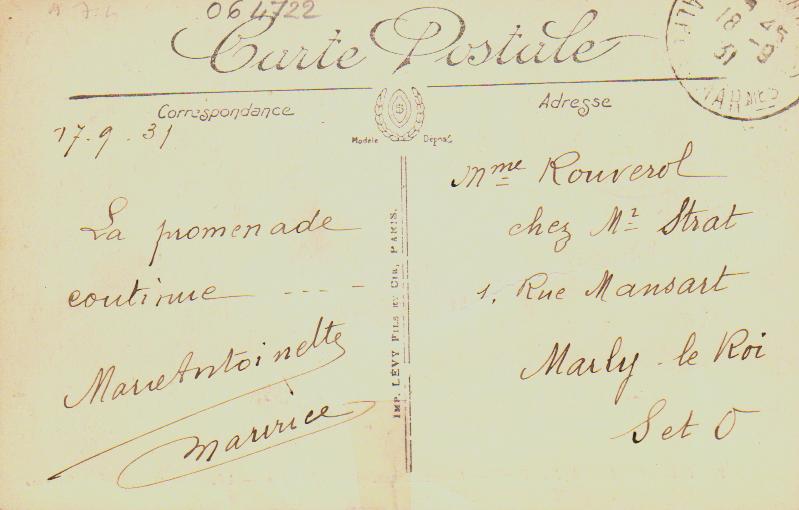 064722
Carte Postale
18 - 9
31
Correspondance
Adresse
Modèle Déposé
17.9.31
La promenade
continue ----
Marie Antoinette
Maurice
IMP. LÉVY FILS ET CIE, PARIS.
Mme Rouverol
chez Mr Strat
1, Rue Mansart
Marly-le Roi
S et O